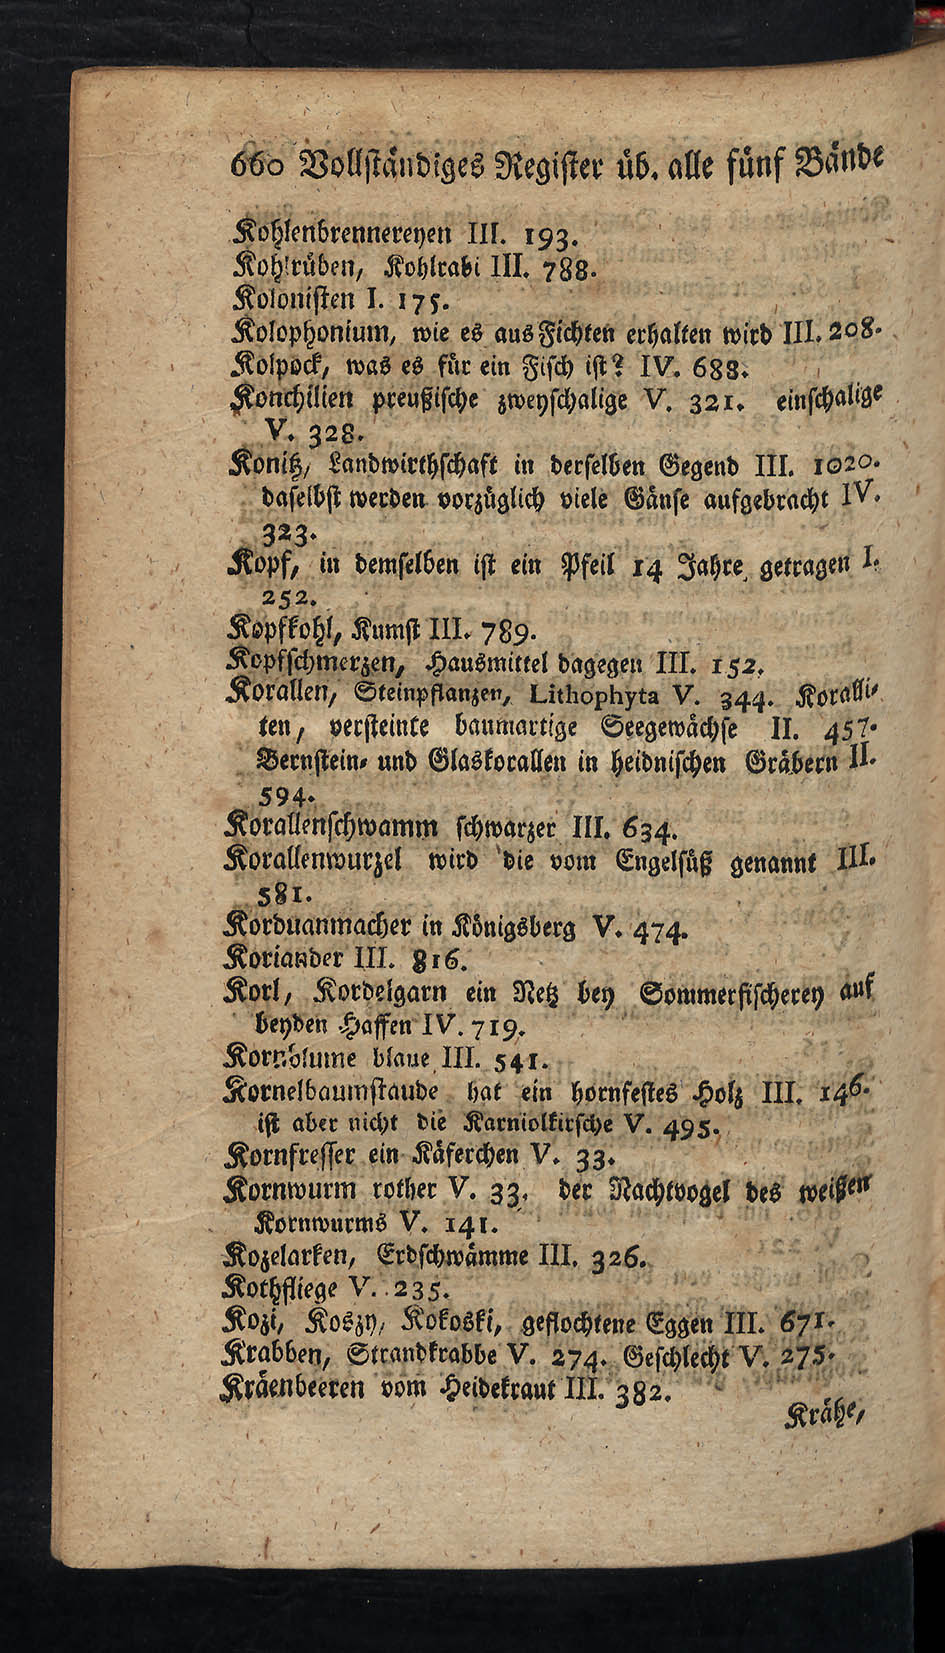 660 Vollständiges Register üb. alle fünf Bände
Kohlenbrennereyen III. 193.
Kohlrüben, Kohlrabi III. 788.
Kolonisten I. 175.
Kolophonium, wie es aus Fichten erhalten wird III. 208.
Kolpock, was es für ein Fisch ist? IV. 688.
Konchilien preußische zweyschalige V. 321. einschalige
V. 328.
Konitz, Landwirthschaft in derselben Gegend III. 1020.
daselbst werden vorzüglich viele Gänse aufgebracht IV.
323.
Kopf, in demselben ist ein Pfeil 14 Jahre getragen I.
252.
Kopfkohl, Kumst III. 789.
Kopfschmerzen, Hausmittel dagegen III. 152.
Korallen, Steinpflanzen, Lithophyta V. 344. Koralli-
ten, versteinte baumartige Seegewächse II. 457.
Bernstein- und Glaskorallen in heidnischen Gräbern II.
594.
Korallenschwamm schwarzer III. 634.
Korallenwurzel wird die vom Engelsüß genannt III.
581.
Korduanmacher in Königsberg V. 474.
Koriander III. 816.
Korl, Kordelgarn ein Netz bey Sommerfischerey auf
beyden Haffen IV. 719.
Kornblume blaue III. 541.
Kornelbaumstaude hat ein hornfestes Holz III. 146.
ist aber nicht die Karniolkirsche V. 495.
Kornfresser ein Käferchen V. 33.
Kornwurm rother V. 33. der Nachtvogel des weißen
Kornwurms V. 141.
Kozelarken, Erdschwämme III. 326.
Kothfliege V. 235.
Kozi, Koszy, Kokoski, geflochtene Eggen III. 671.
Krabben, Strandkrabbe V. 274. Geschlecht V. 275.
Kräenbeeren vom Heidekraut III. 382.
Krähe,